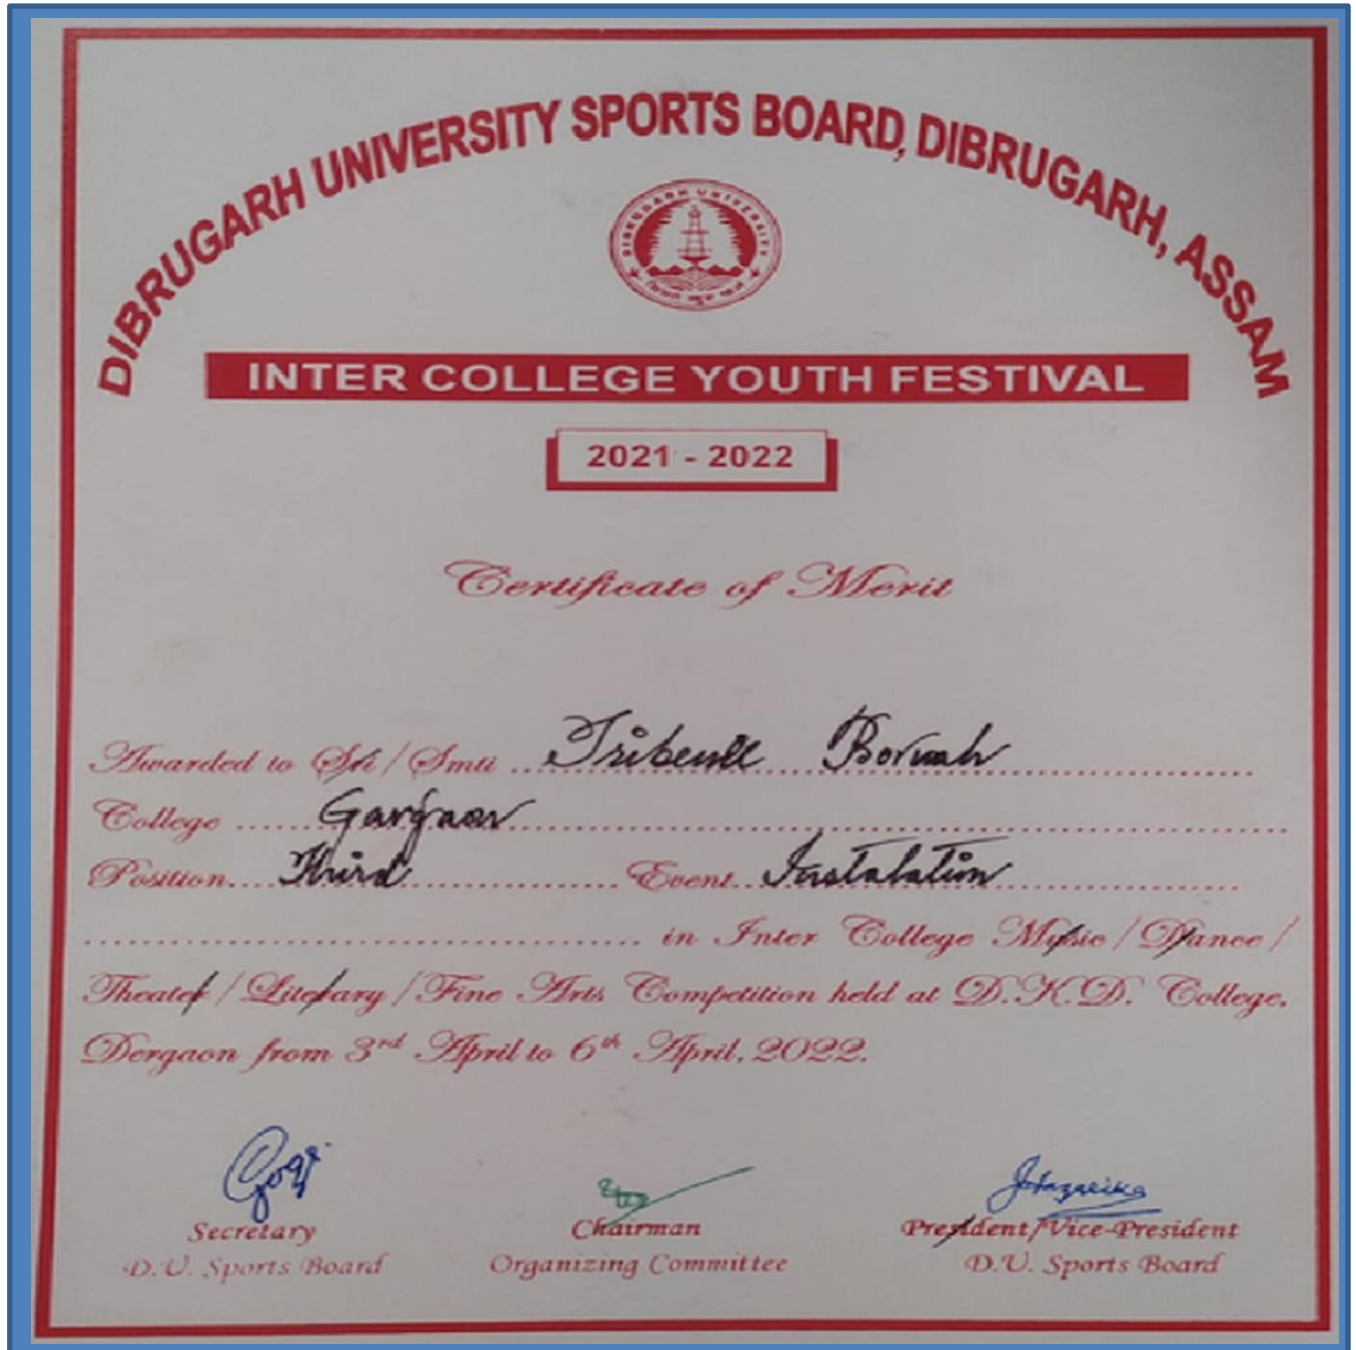 DIBRUGARH UNIVERSITY SPORTS BOARD, DIBRUGARH, ASSAM
DIBRUGARH UNIVERSITY
INTER COLLEGE YOUTH FESTIVAL
2021 - 2022
Certificate of Merit
Awarded to Sri / Smti ... Boruah
College ... Gargaon
Position ... Third ... Event ... Instalation
in Inter College Music / Dance /
Theater / Literary / Fine Arts Competition held at D.K.D. College,
Dergaon from 3rd April to 6th April, 2022.
Gogi
Secretary Chairman President/Vice-President
D.U. Sports Board Organizing Committee D.U. Sports Board